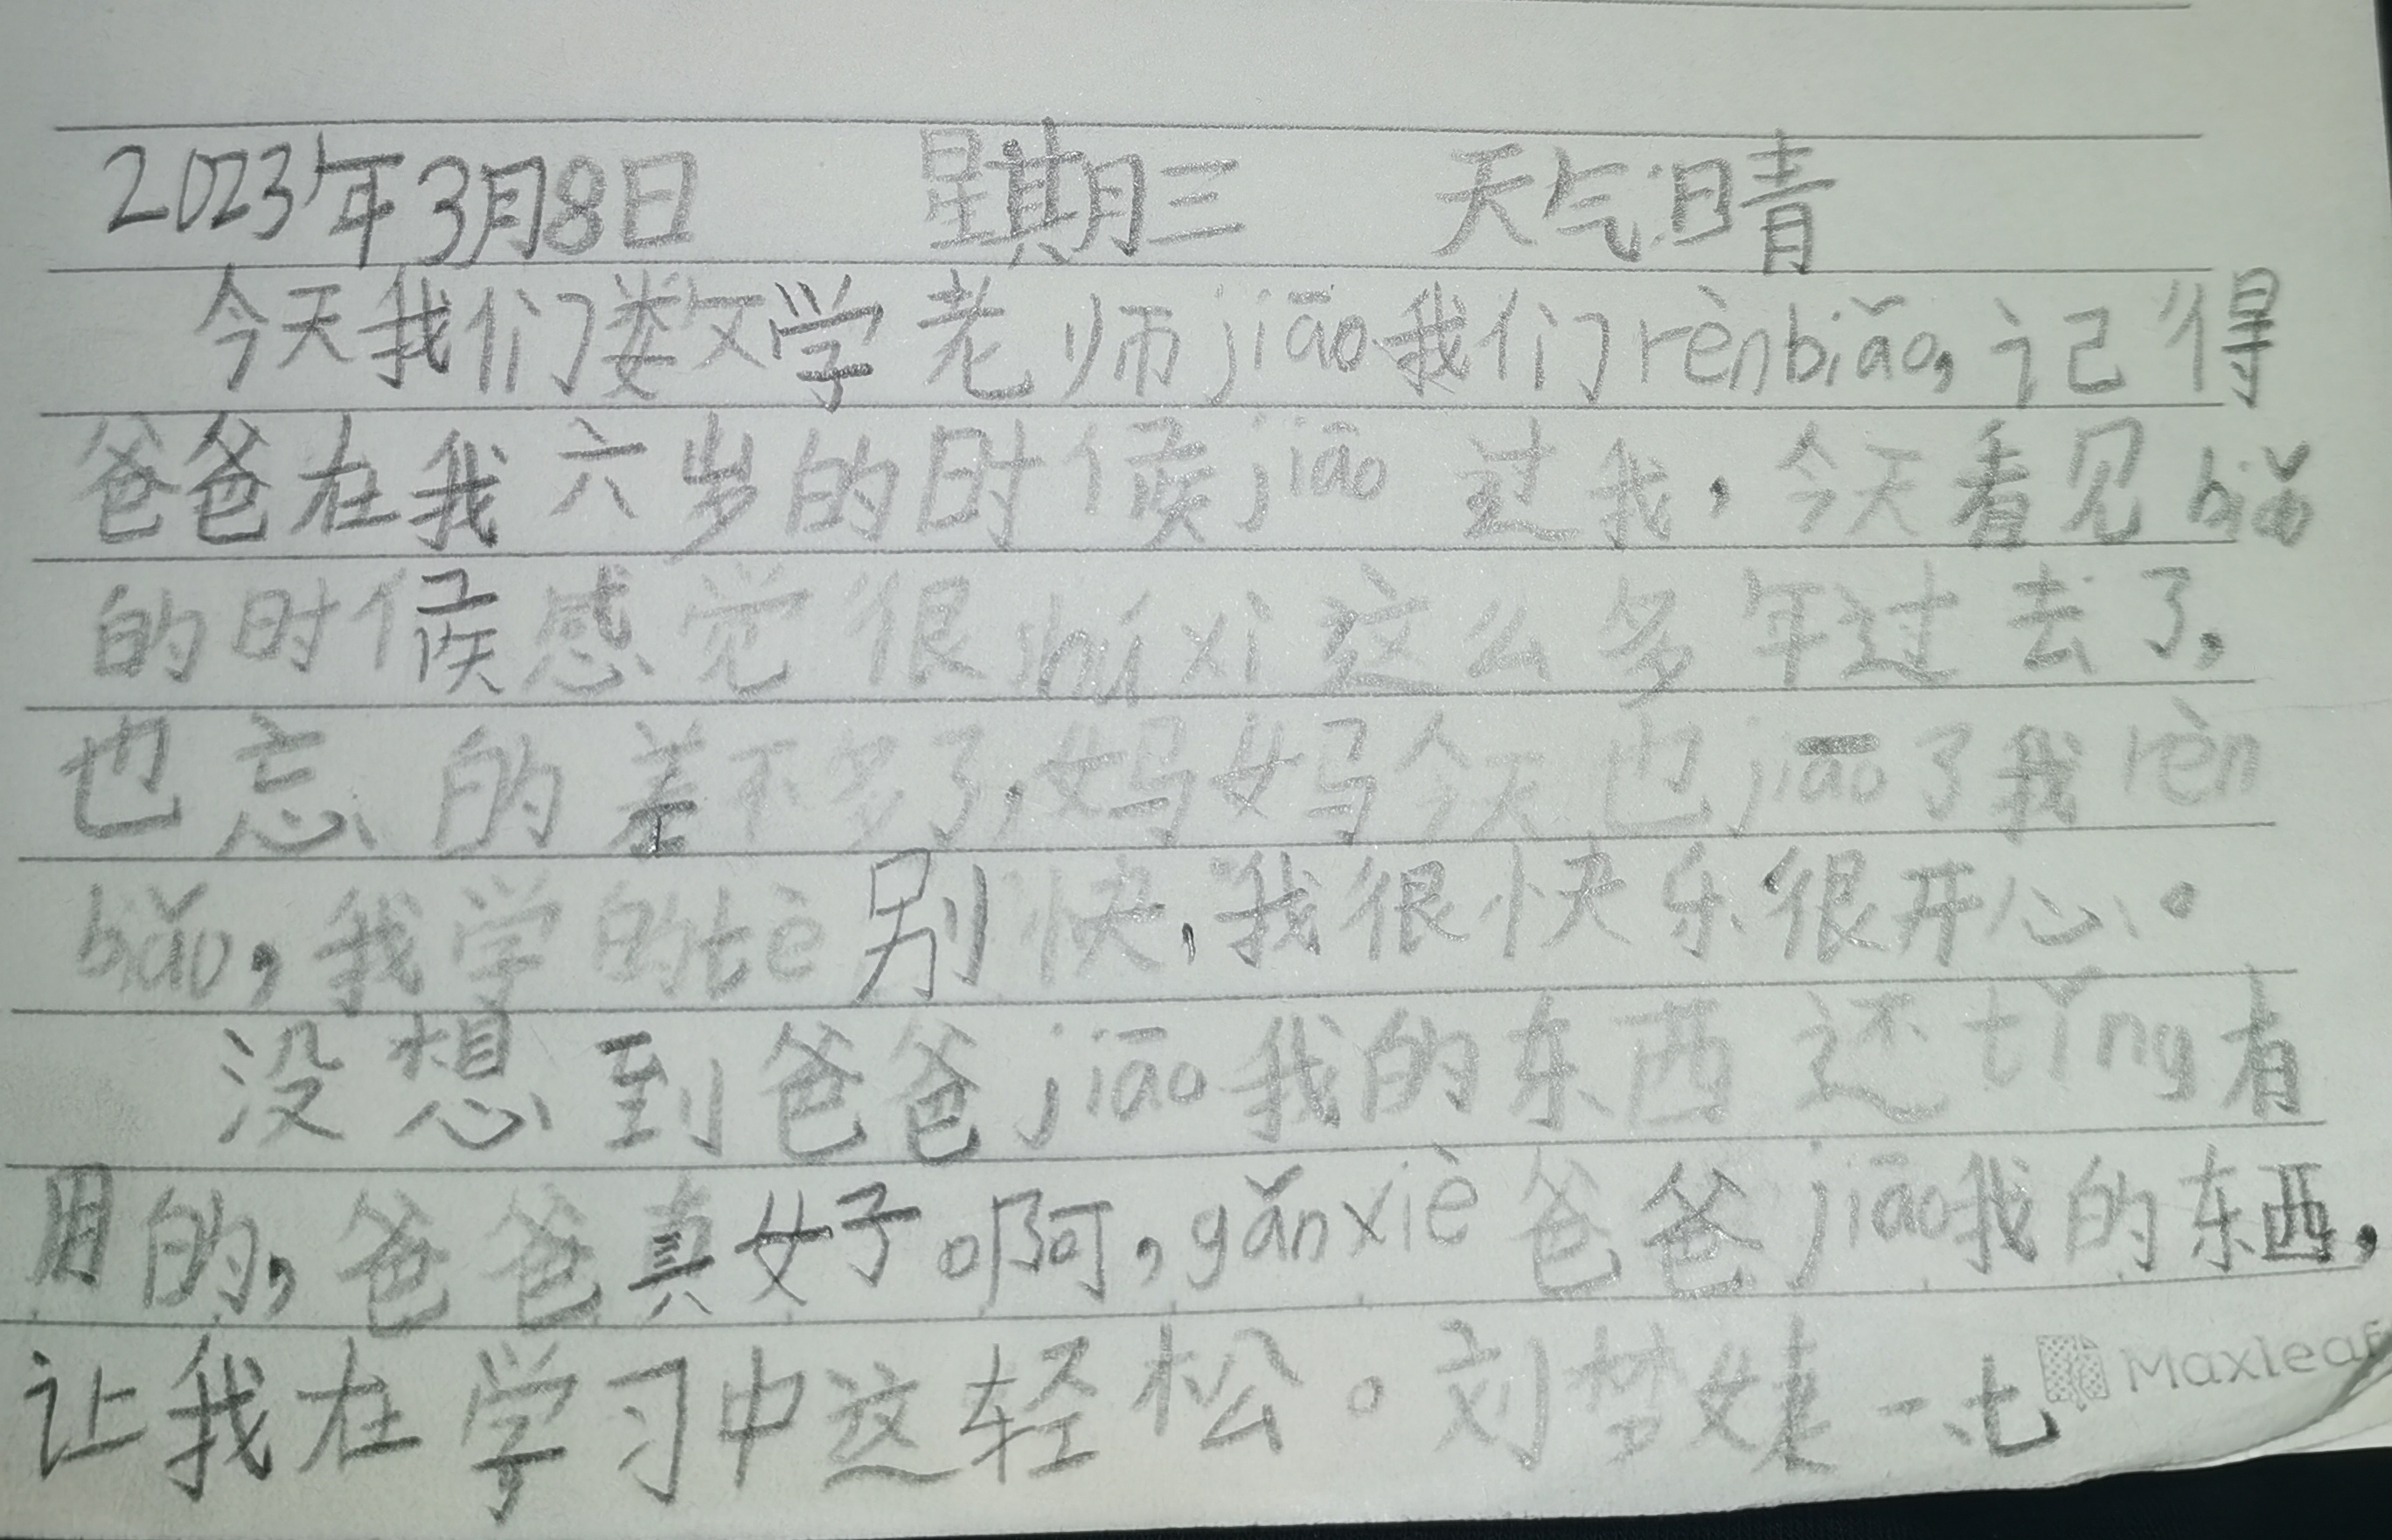 2023年3月8日 星期三 天气:晴
今天我们数学老师jiāo我们rènbiǎo,记得
爸爸在我六岁的时候jiāo过我,今天看见biǎo
的时候感觉很shúxi这么多年过去了,
也忘的差不多了,妈妈今天也jiāo了我rèn
biǎo,我学的tè别快,我很快乐很开心。
没想到爸爸jiāo我的东西还tǐng有
用的,爸爸真好啊,gǎnxiè爸爸jiāo我的东西,
让我在学习中这轻松。刘梦婕一七
Maxleaf